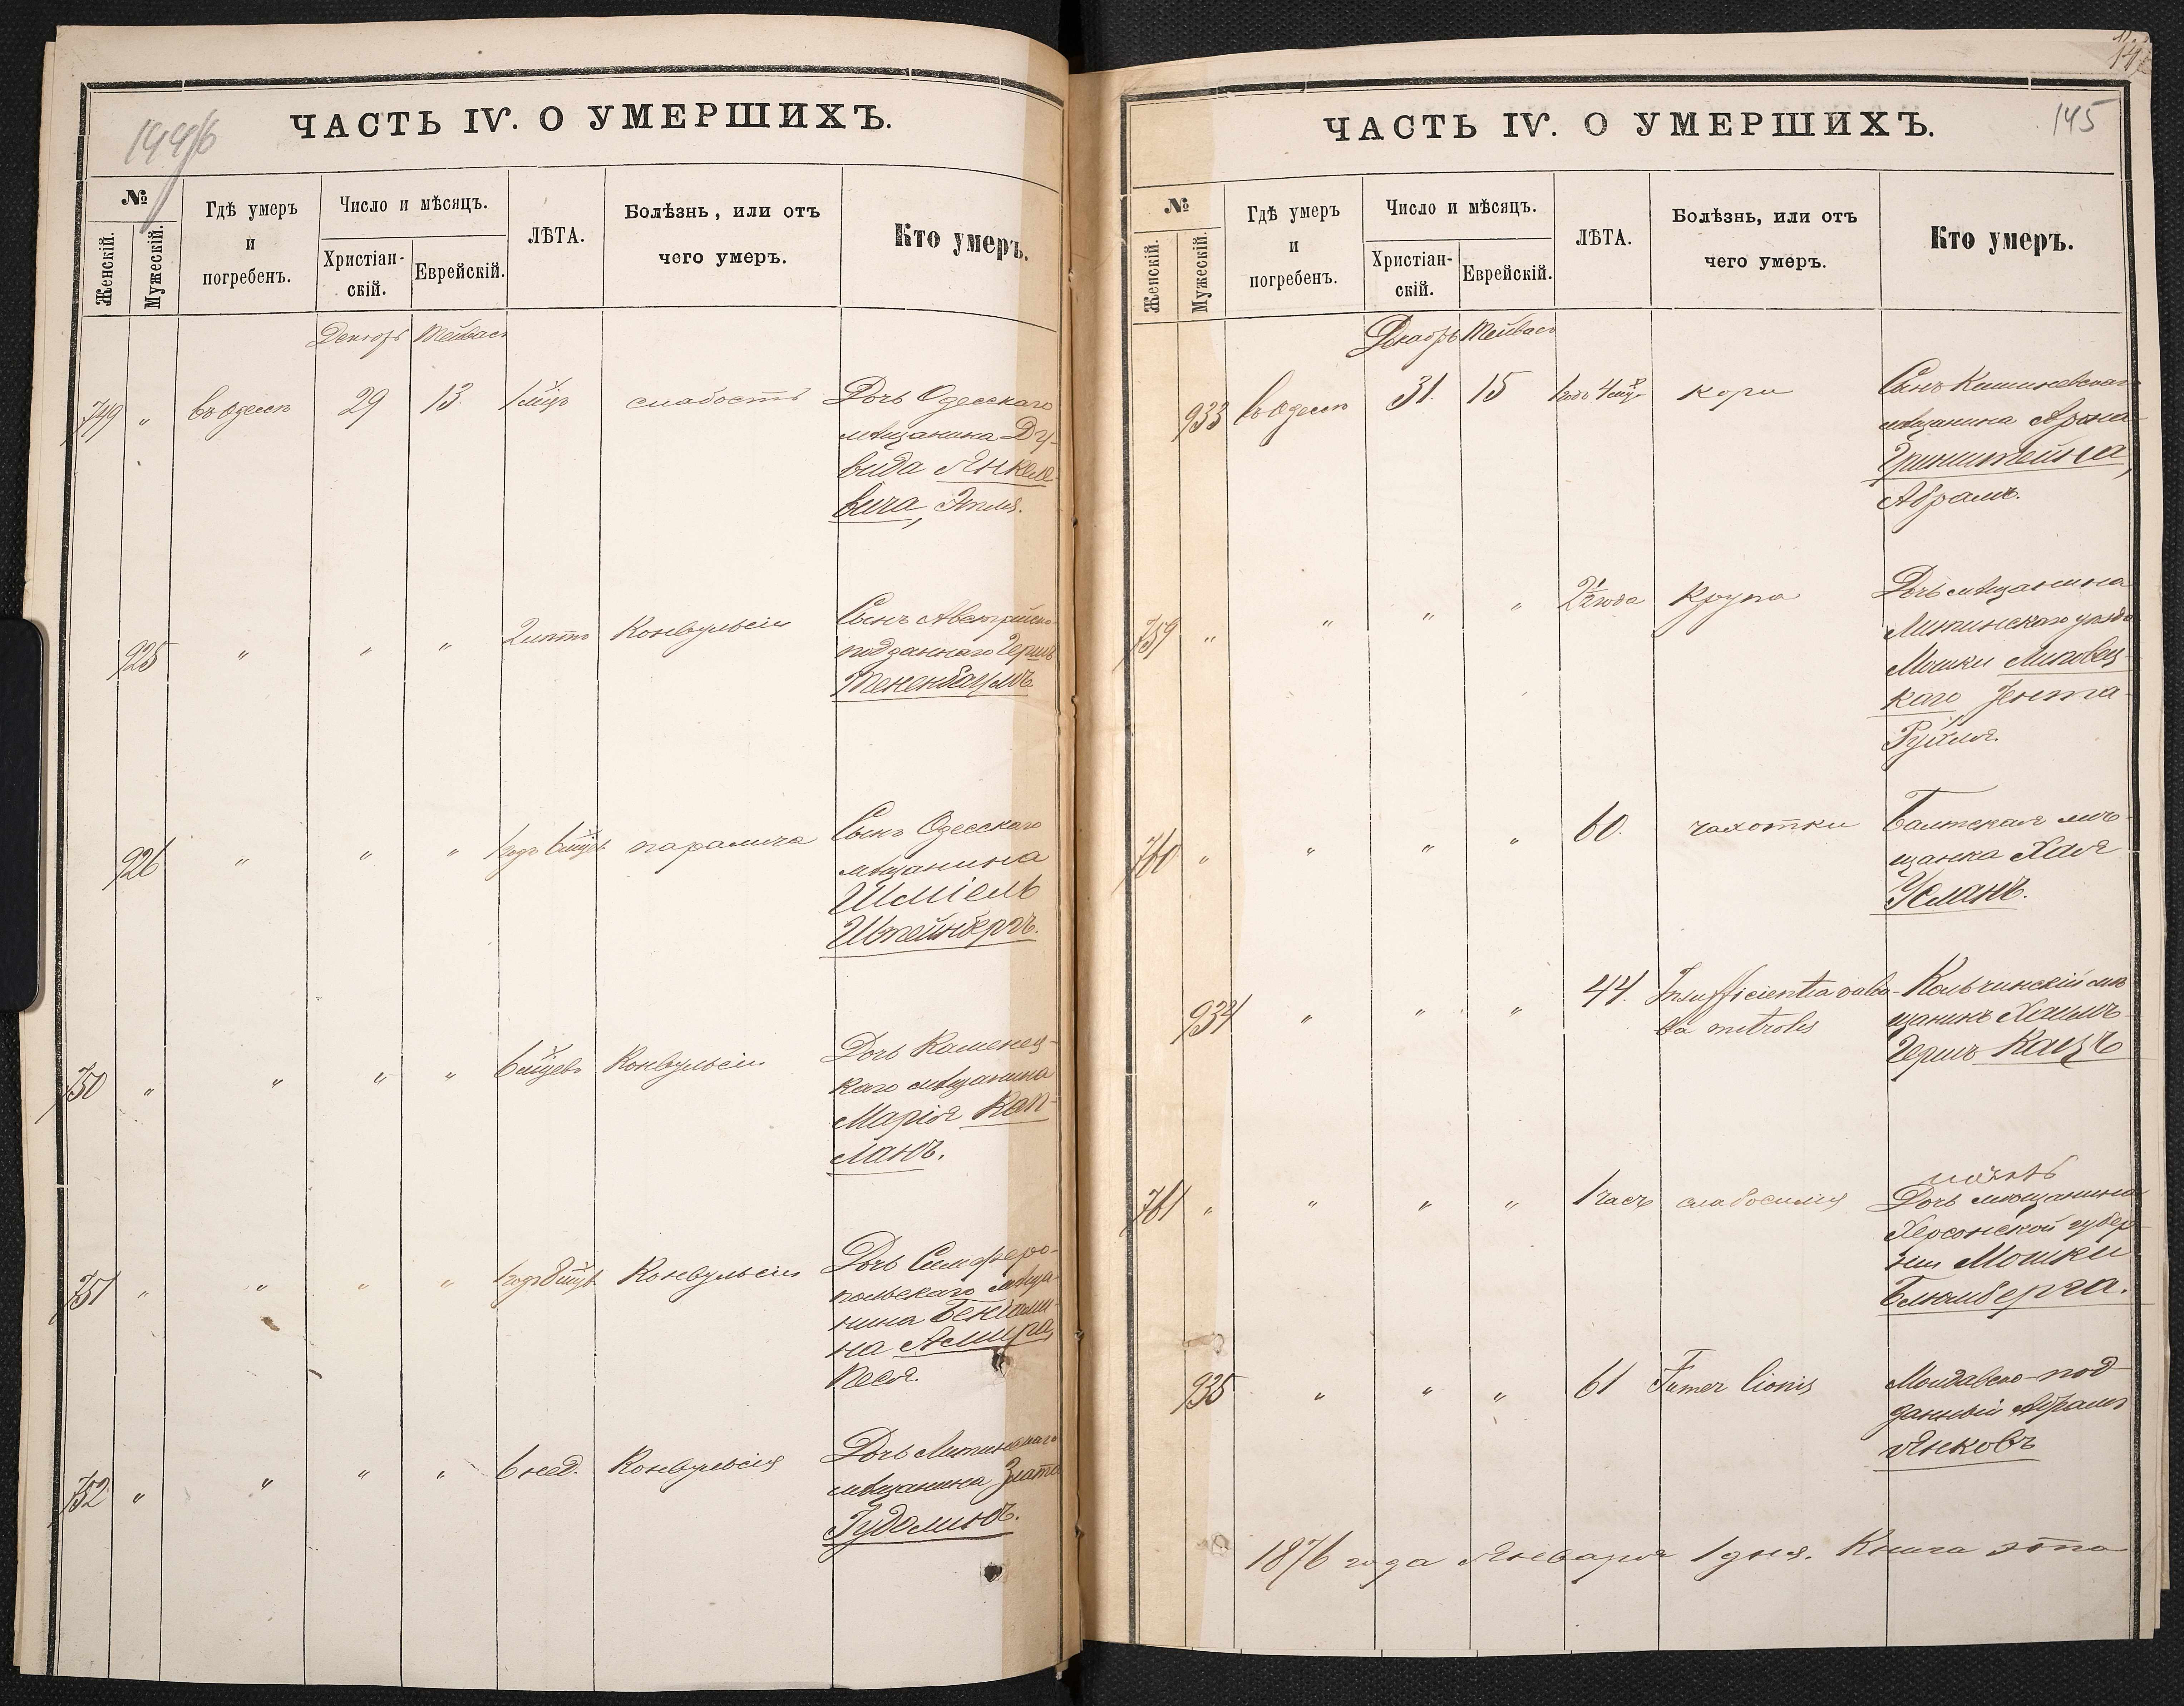 ЧАСТЬ IV. О УМЕРШИХЪ.
№
Женскій.
Мужескій.
Гдѣ умеръ
и
погребенъ.
Число и мѣсяцъ.
Христіан-
скій.
Еврейскій.
ЛѢТА.
Болѣзнь, или отъ
чего умеръ.
Кто умеръ.
749 " въ Одессѣ 29 13 слабость Дочь Одесскаго
мѣщанина Ду-
вида Янкеле-
вича,
925 " " " Конвульсіи Сынъ Австрійско-
подданнаго Гершъ
Тененбаумъ.
926 " " " параличa Сынъ Одесскаго
мѣщанина
Шміель
Штейнбергъ.
750 " " " " Конвульсіи Дочь Каменец-
каго мѣщанина
Марія Кап-
ланъ.
751 " " " " Конвульсіи Дочь Симферо-
польскаго мѣща-
нина Беніами-
на
Песя.
752 " " " " 6 нед. Конвульсія Дочь
мѣщанина Злата
Гудолинъ.
ЧАСТЬ IV. О УМЕРШИХЪ.
145
№
Женскій.
Мужескій.
Гдѣ умеръ
и
погребенъ.
Число и мѣсяцъ.
Христіан-
скій.
Еврейскій.
ЛѢТА.
Болѣзнь, или отъ
чего умеръ.
Кто умеръ.
Декабрь Тейвасъ
933 въ Одессѣ 31. 15 кори Сынъ Кишиневскаго
мѣщанина Арона
Гринштейна,
Абрамъ.
759 " " " " 2½ года крупа Дочь мѣщанина
Литинскаго уѣзда
Мошки Липовец-
каго Ента
Рухля.
760 " " " " 60. чахотки Балтская мѣ-
щанка Хая
Усланъ.
934 " " " 44. Insufficientia valvu-
la mitrolis
мѣ-
щанинъ Хаимъ
Гершъ Кацъ
761 " " " " 1 часъ слабосилія
Дочь мѣщанина
Херсонской губер-
ніи Мошки
Блюмберга.
935 " " " 61 Молдавско-под-
данный Абрамъ
Янковъ
1876 года Января 1 дня. Книга эта